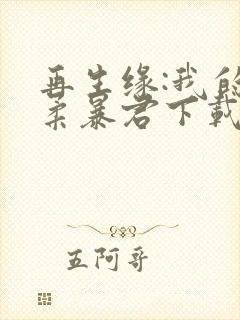 再生缘:我的
柔暴君下载
五阿哥